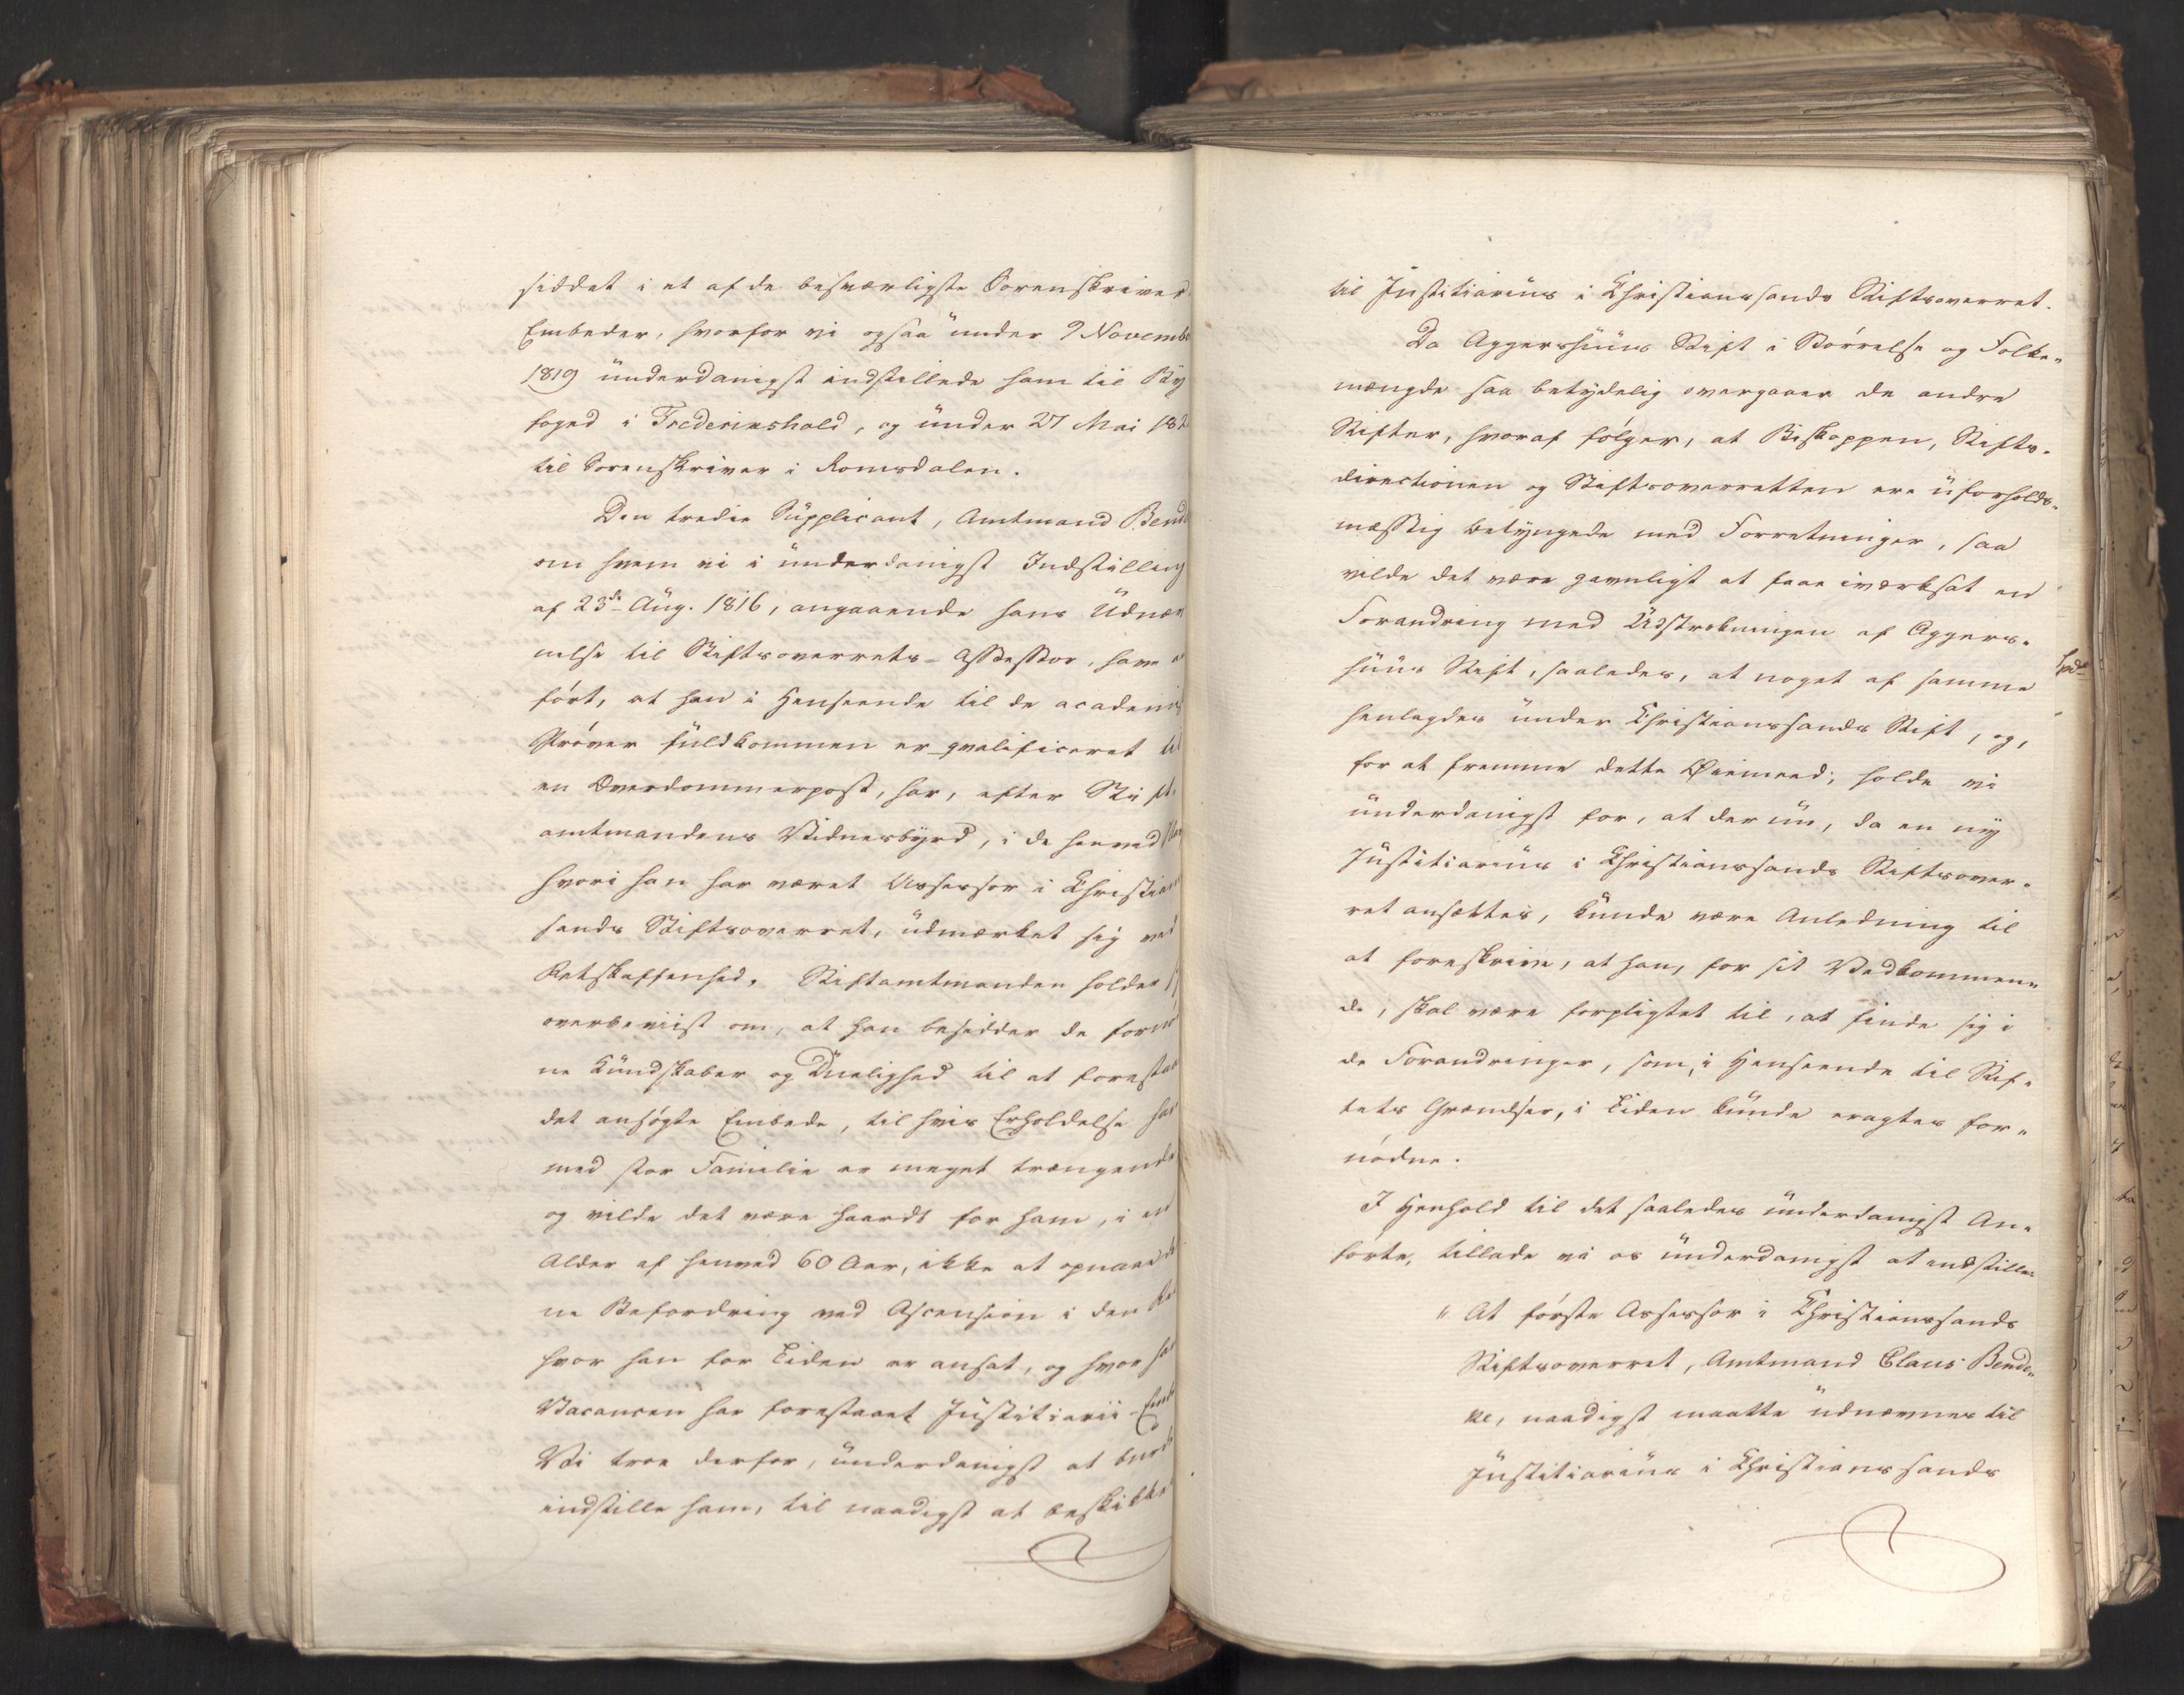 siddet i et af de besværligste Sorenskriver
Embeder, hvorfor vi ogsaa under 9 Novembe
1819 underdanigst indstillede ham til By
foged i Fredericshald, og under 27 Mai 182
til Sorenskriver i Romsdalen.
Den tredie Supplicant, Amtmand Bend
om hvem vi i underdanigst Indstilling
af 23de Aug. 1816, angaaende hans Udnæv
nelse til Stiftsoverrets-Assessor, have a
ført, at han i Henseende til de academi
Prøver fuldkommen er qvalificeret til
en Overdommerpost, har, efter Stift-
amtmandens Vidnesbyrd, i de henved
hvori han har været Assessor i Christian
sands Stiftsoverret, udmærket sig ved
Retskaffenhed. Stiftamtmanden holder
overbeviist om, at han besidder de fornø
ne Kundskaber og Duelighed til at forestaae
det ansøgte Embede, til hvis Erholdelse han
med stor Familie er meget trængende
og vilde det være haardt for ham, i en
Alder af henved 60 Aar, ikke at opnaae
ne Befordring ved Ascension i den Ret
hvor han for Tiden er ansat, og hvor han
Vacancen har forestaaet Justitiarii-Emb
Vi troe derfor, underdanigst at burde
indstille ham, til naadigst at beskikke
til Justitiarius i Christianssands Stiftsoverret.
Da Aggershuus Stift i Størrelse og Folke-
mængde saa betydelig overgaaer de andre
Stifter, hvoraf følger, at Biskoppen, Stifts-
directionen og Stiftsoverretten ere uforholds-
mæssig betyngede med Forretninger, saa
vilde det være gavnligt at faae iværksat en
Forandring med Udstrekningen af Aggers-
huus Stift, saaledes, at noget af samme
henlagdes under Christianssands Stift, og,
for at fremme dette Øiemeed, holde vi
underdanigst for, at der nu, da en ny
Justitiarius i Christianssands Stiftsover-
ret ansættes, kunde være Anledning til
at foreskrive, at han, for sit Vedkommen-
de, skal være forpligtet til, at finde sig i
de Forandringer, som, i Henseende til Stif-
tets Grændser, i Tiden kunde eragtes for-
nødne.
I Henhold til det saaledes underdanigst An-
førte, tillade vi os underdanigst at indstille:
" At første Assessor i Christianssands
Stiftsoverret, Amtmand Claus Bende-
ke, naadigst maatte udnævnes til
Justitiarius i Christianssands